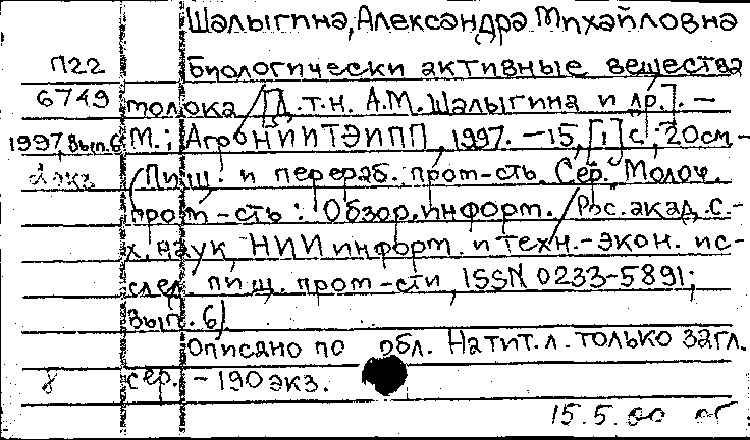 Шалыгина, Александра Михайловна
П22 Биологически активные вещества
6749 молока /[Д.т.н. А.М. Шалыгина и др.]. –
1997, вып.6 М.: АгроНИИТЭИПП, 1997. – 15, [1] с.; 20см –
2 экз (Пищ. и перераб. пром-сть. Сер. "Молоч.
пром-сть": Обзор. информ. / Рос. акад. с.-
х. наук, НИИ информ. и техн.-экон. ис-
след. пищ. пром-сти, ISSN 0233-5891;
Вып. 6)
Описано по обл. На тит. л. только загл.
8 сер. – 190 экз.
15.5.00